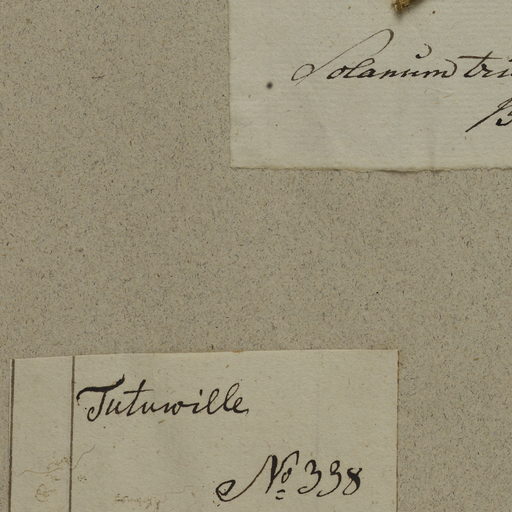 Solanum
Tutuwille
No. 338